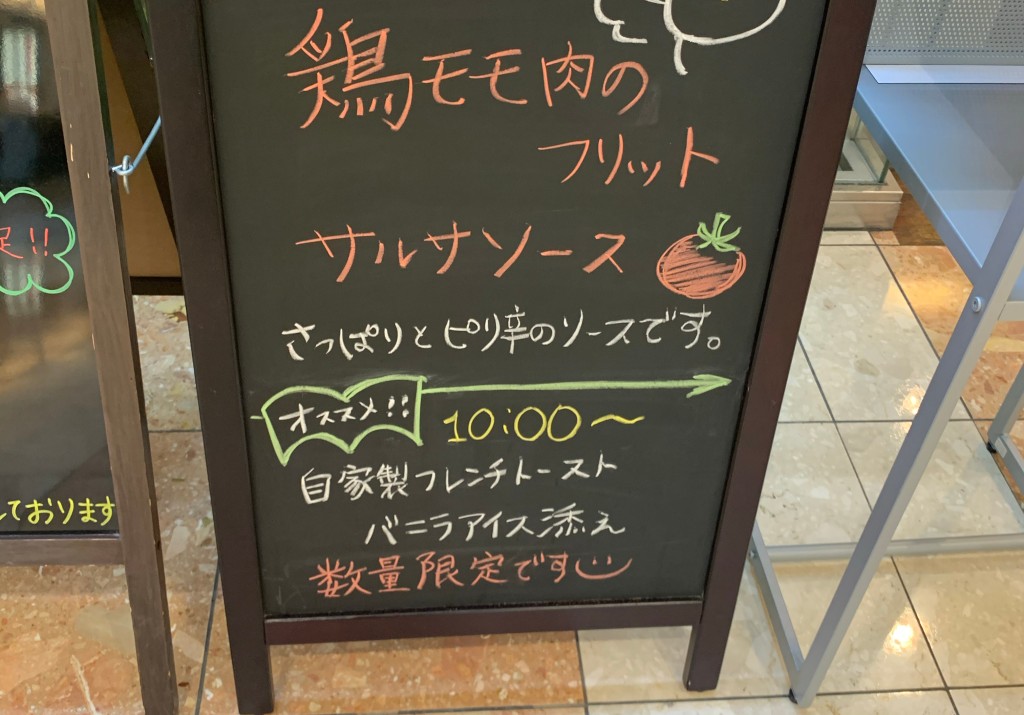 鶏モモ肉の
フリット
サルサソース
さっぱりとピリ辛のソースです。
オススメ!!
10:00〜
自家製フレンチトースト
バニラアイス添え
数量限定です
足!!
ております